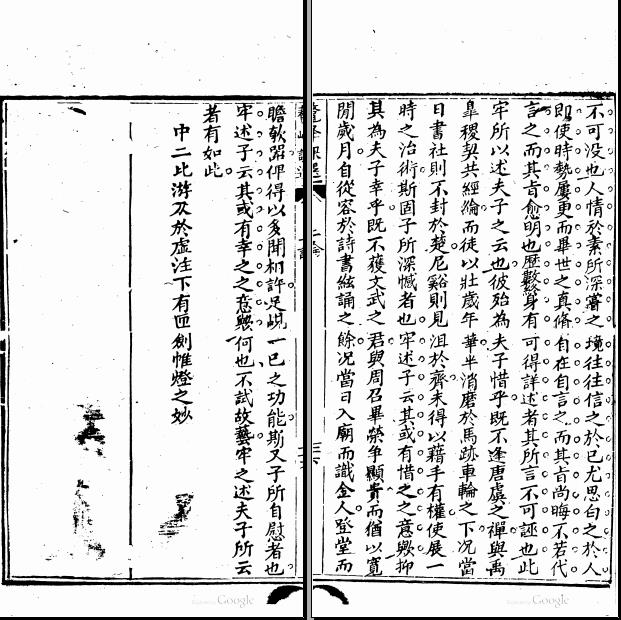 不可没也人情於素所深嘗之境往往信之於已尤思白之於人
即使時勢屢更而畢世之真脩自在自言之而其㫖尚晦不若代
言之而其㫖愈明也歷數身有可得詳述者其所言不可誣也此
牢所以述夫子之云也彼殆為夫子惜乎既不逢唐虞之禪與禹
臯稷契共經綸而徒以壯歲年華半消磨於馬跡車輪之下况當
日書社則不封於楚尼谿則見沮於齊未得以藉手有權使展一
時之治術斯固子所深憾者也牢述子云其或有惜之之意歟抑
其為夫子幸乎既不獲文武之君與周召畢榮爭顯貴而猶以寛
閒歲月自從容於詩書絃誦之餘况當日入廟而識金人登堂而
瞻欹器俾得以多聞相許足覘一已之功能斯又子所自慰者也
牢述子云其或有幸之之意歟何也不試故藝牢之述夫子所云
者有如此
中二比游刃於虛注下有匣劍帷燈之妙
二論
Google
Google